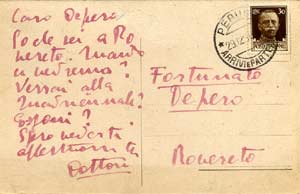 Caro Depero
So che sei a Ro
vereto. Quando
ci vedremo?
Verrai alla
Quadriennale?
Esponi?
Spero vederti
affettuosità
Dottori
PERUGIA
ARRIVI E PARTENZE
30
Fortunato
Depero
Rovereto